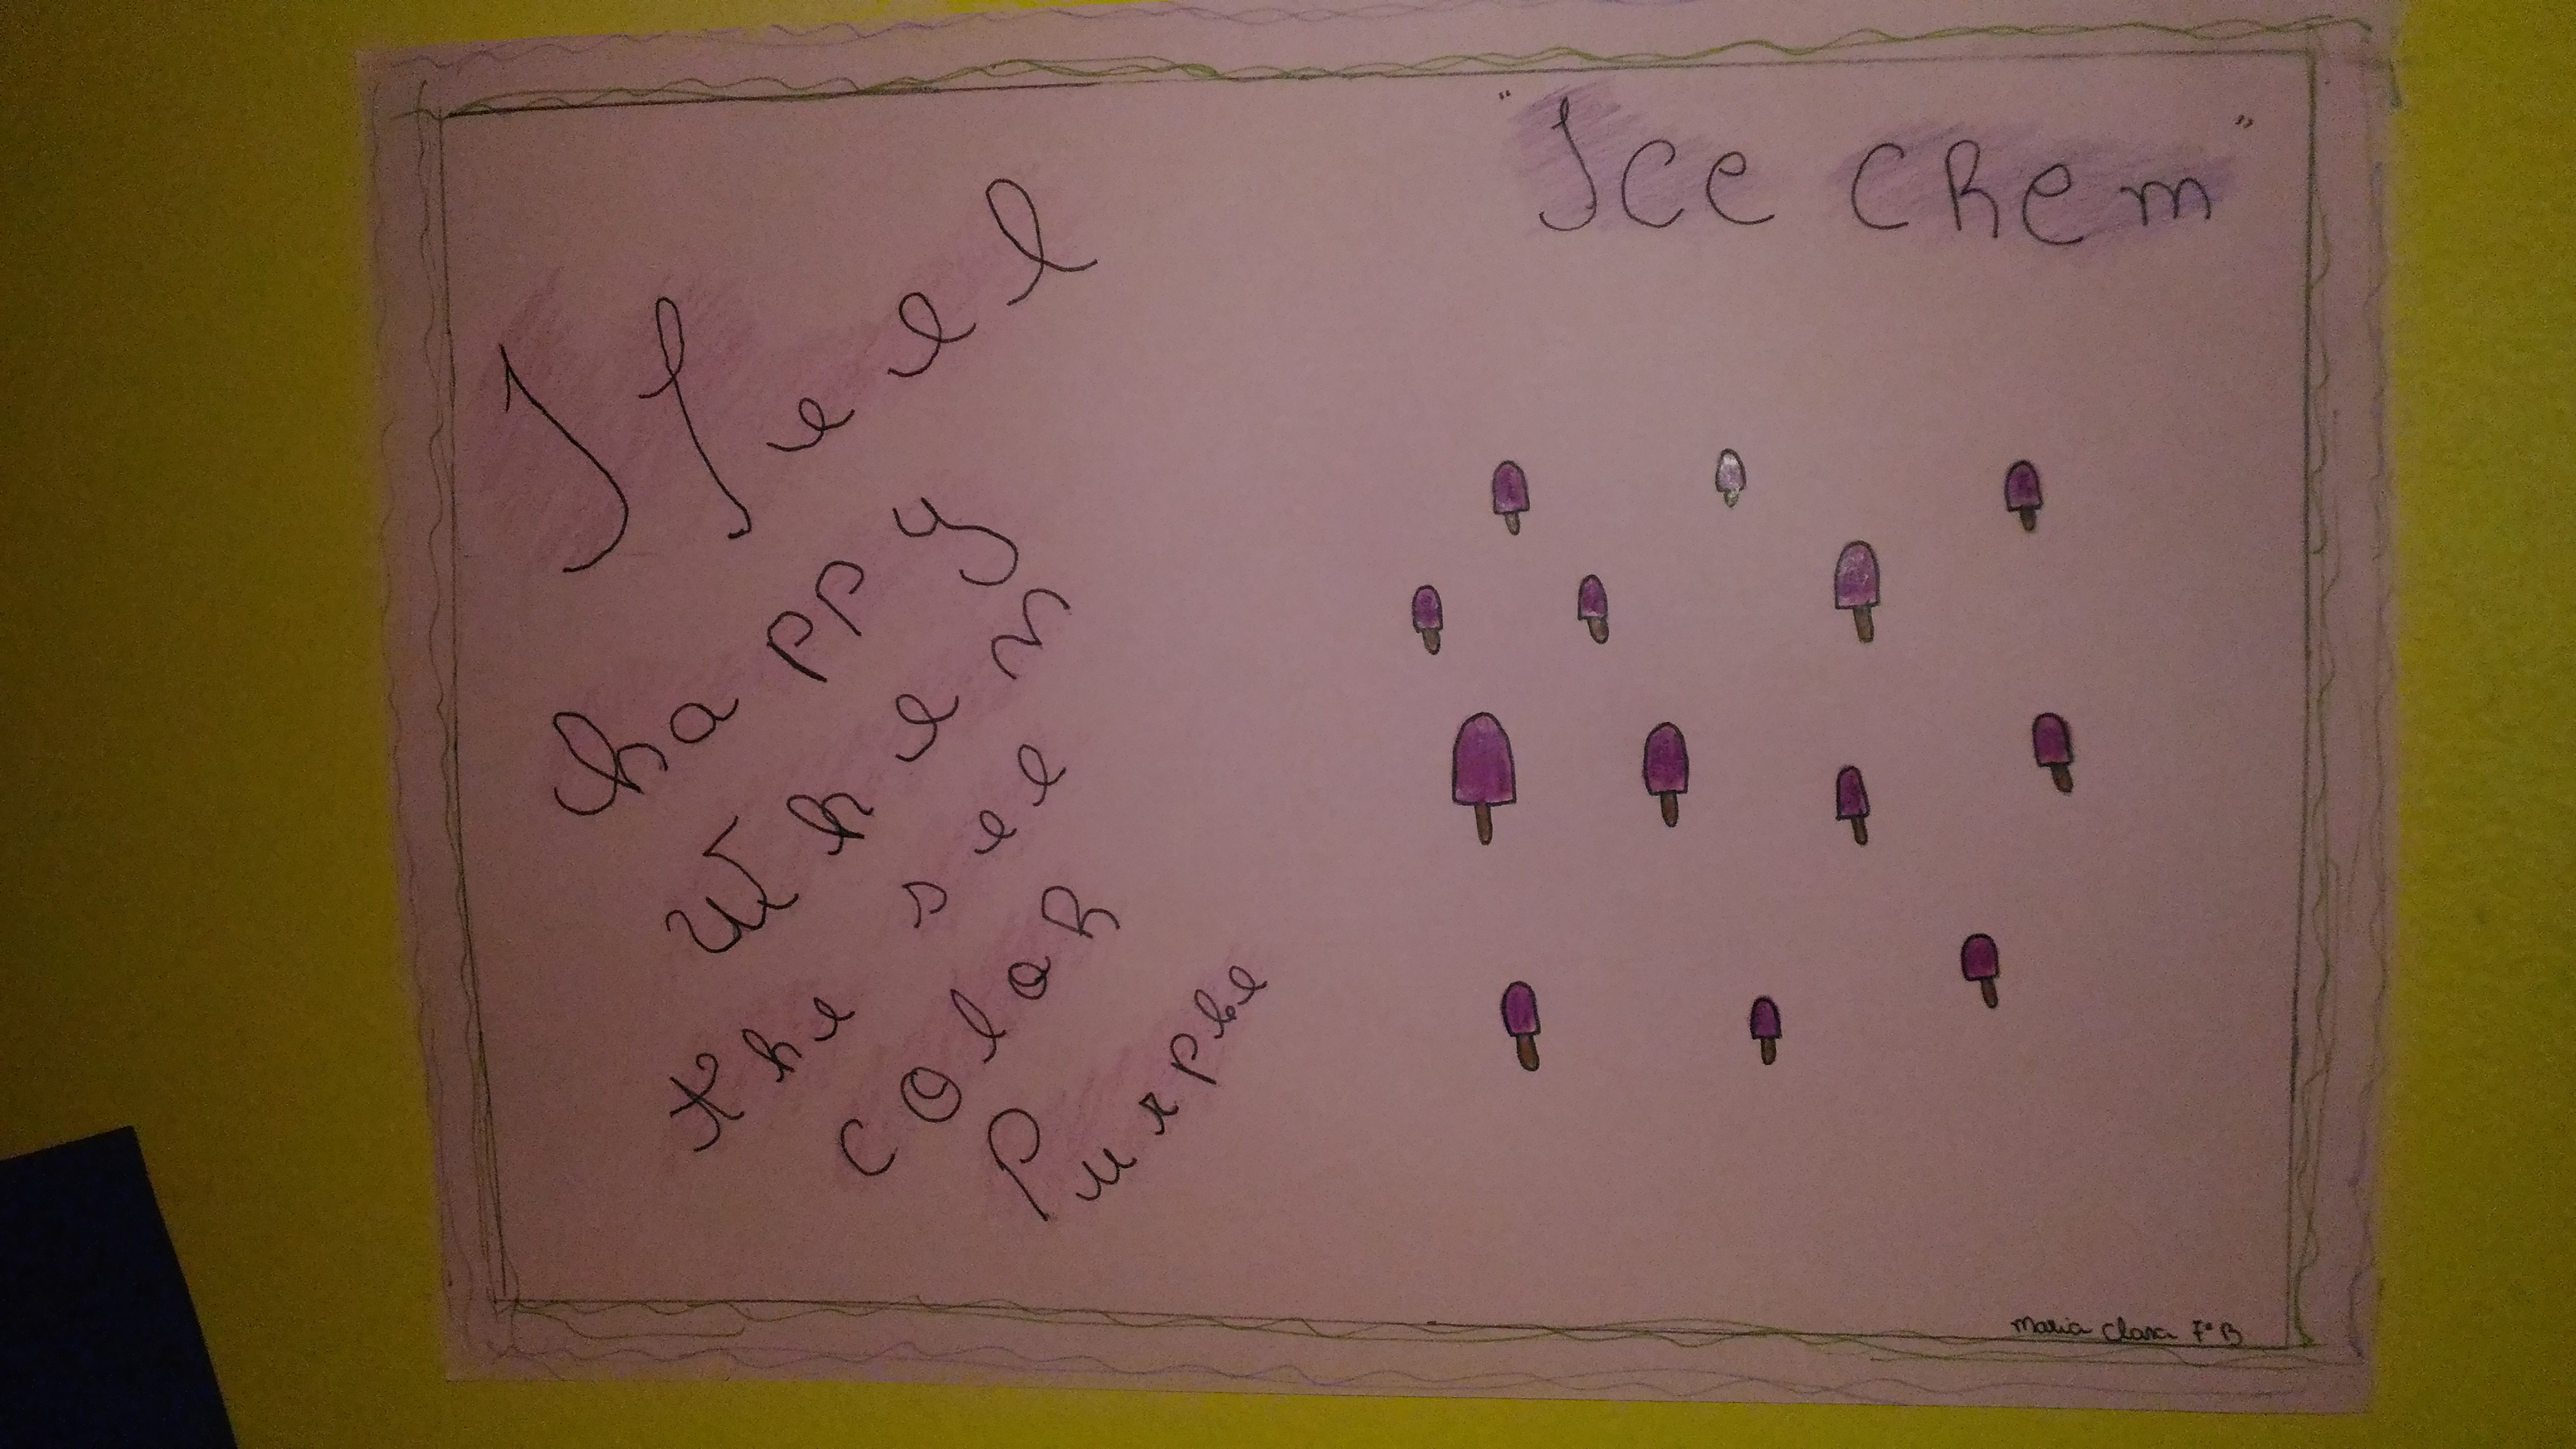 "Ice CRem"
I feel
happy
When
the see
COlaR
Purple
Maria Clara 7º B